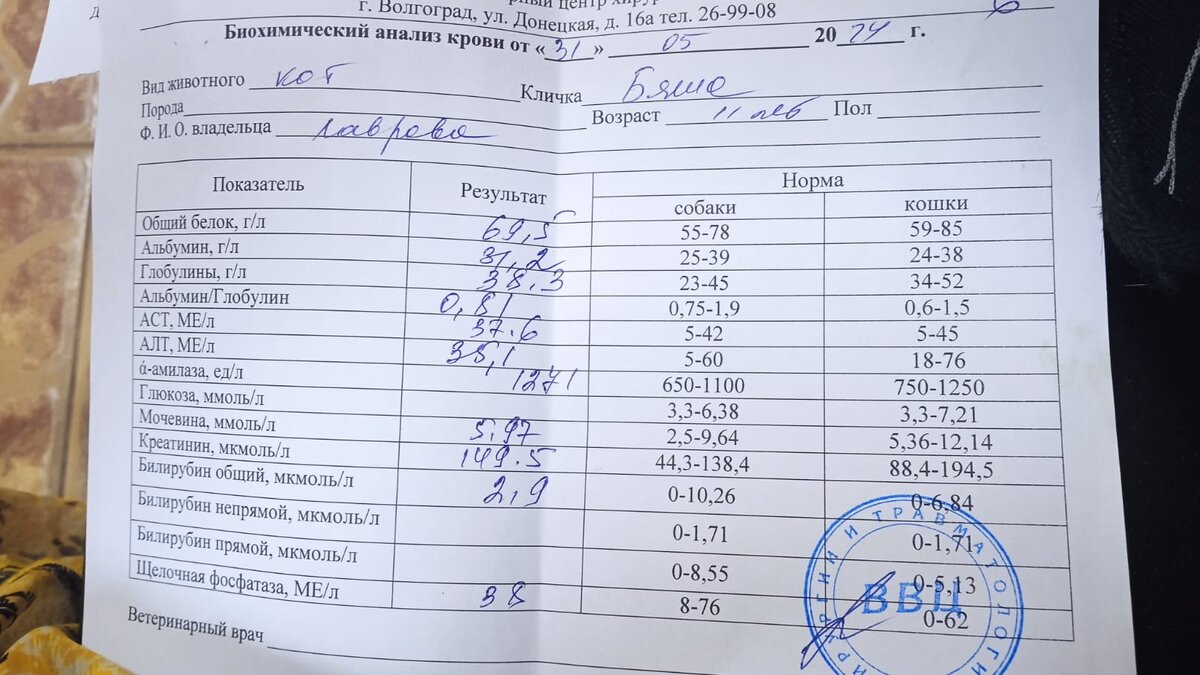 г. Волгоград, ул. Донецкая, д. 16а тел. 26-99-08
Биохимический анализ крови от «31» 05 2024 г.
Вид животного кот Кличка Бяша
Порода Возраст 11 лет Пол
Ф. И. О. владельца Лаврова
Показатель Результат Норма
собаки кошки
Общий белок, г/л 69,5 55-78 59-85
Альбумин, г/л 31,2 25-39 24-38
Глобулины, г/л 38.3 23-45 34-52
Альбумин/Глобулин 0,81 0,75-1,9 0,6-1,5
АСТ, МЕ/л 37.6 5-42 5-45
АЛТ, МЕ/л 38,1 5-60 18-76
ά-амилаза, ед/л 1271 650-1100 750-1250
Глюкоза, ммоль/л 3,3-6,38 3,3-7,21
Мочевина, ммоль/л 5.97 2,5-9,64 5,36-12,14
Креатинин, мкмоль/л 149.5 44,3-138,4 88,4-194,5
Билирубин общий, мкмоль/л 2,9 0-10,26 0-6,84
Билирубин непрямой, мкмоль/л 0-1,71 0-1,71
Билирубин прямой, мкмоль/л 0-8,55 0-5,13
Щелочная фосфатаза, МЕ/л 38 8-76 0-62
Ветеринарный врач
ВВЦ
ХИРУРГИИ И ТРАВМАТОЛОГИ